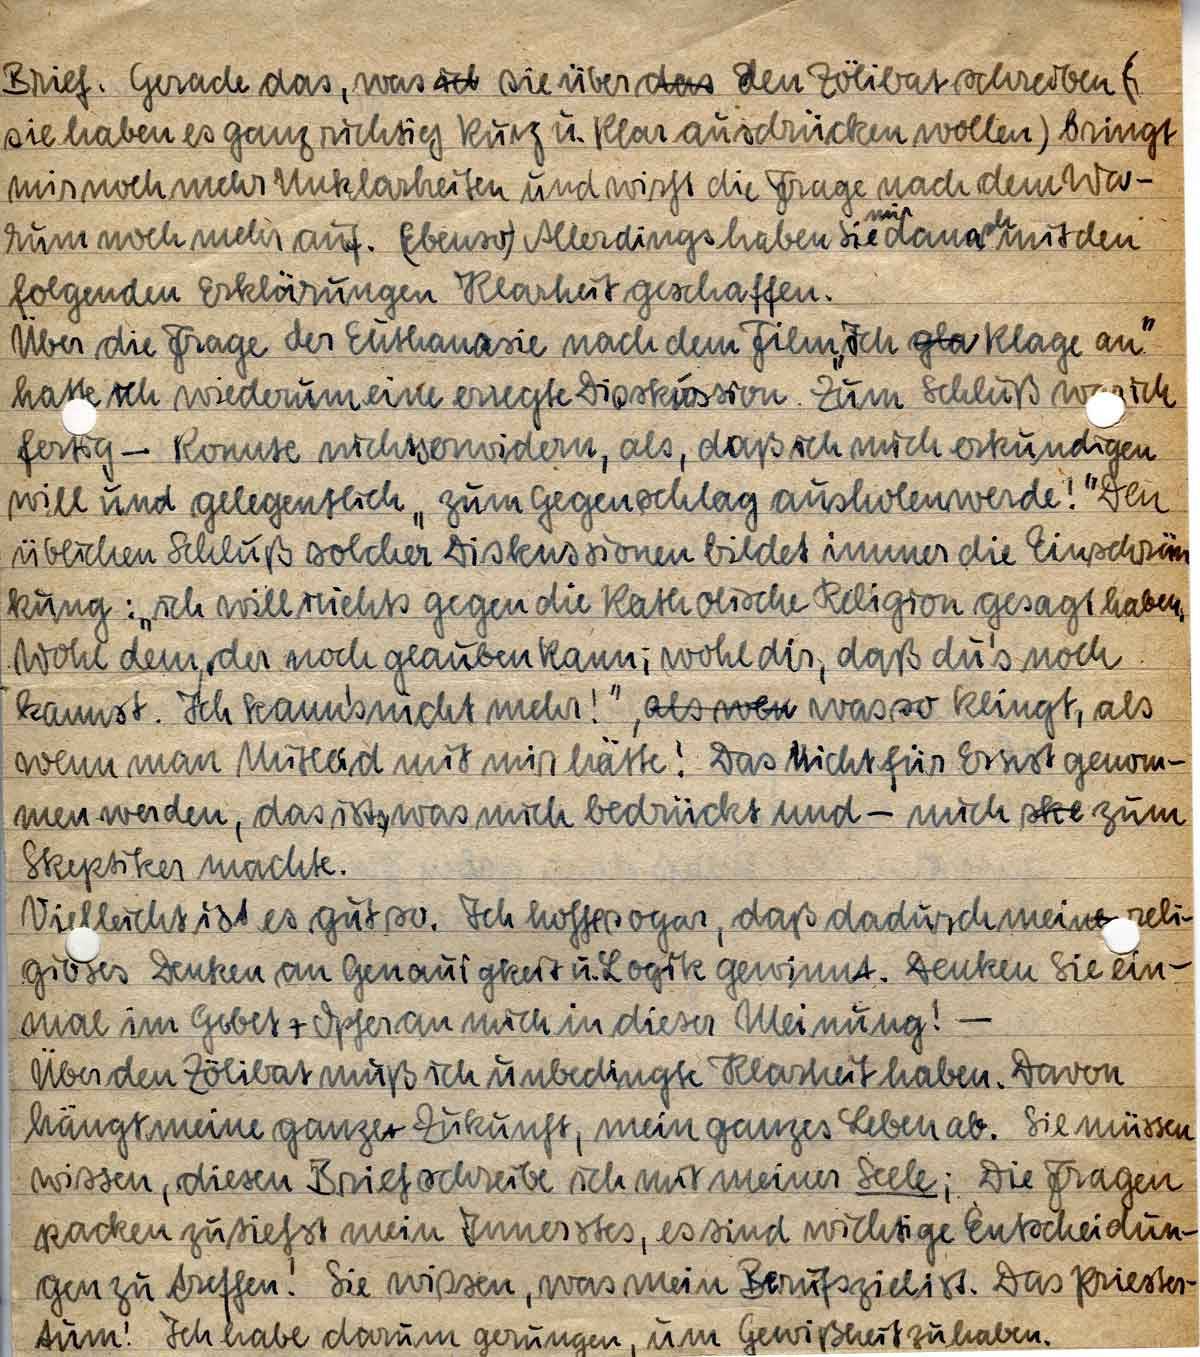 Brief. Gerade das, was ich sie über das den Zölibat schreiben (
sie haben es ganz richtig kurz u. klar ausdrücken wollen) bringt
mir noch mehr Unklarheiten und wirft die Frage nach dem Wa-
rum noch mehr auf. (Ebenso) Allerdings haben Sie mir danach mit den
folgenden Erklärungen Klarheit geschaffen.
Über die Frage der Euthanasie nach dem Film „Ich gla klage an"
hatte ich wiederum eine erregte Diskussion. Zum Schluß war ich
fertig — konnte nichts erwidern, als, daß ich mich erkundigen
will und gelegentlich „zum Gegenschlag ausholen werde!" Den
üblichen Schluß solcher Diskussionen bildet immer die Einschrän
kung: „ich will nichts gegen die Katholische Religion gesagt haben.
Wohl dem, der noch glauben kann; wohl dir, daß du's noch
kannst. Ich kann's nicht mehr!", als wen was so klingt, als
wenn man Mitleid mit mir hätte! Das Nicht für Ernst genom-
men werden, das ist, was mich bedrückt und — mich ske zum
Skeptiker machte.
Vielleicht ist es gut so. Ich hoffe sogar, daß dadurch meine reli-
giöses Denken an Genauigkeit u. Logik gewinnt. Denken Sie ein-
mal im Gebet + Opfer an mich in dieser Meinung! —
Über den Zölibat muß ich unbedingte Klarheit haben. Davon
hängt meine ganze Zukunft, mein ganzes Leben ab. Sie müssen
wissen, diesen Brief schreibe ich mit meiner Seele; Die Fragen
packen zutiefst mein Innerstes, es sind wichtige Entscheidun-
gen zu treffen! Sie wissen, was mein Berufsziel ist. Das Priester-
tum! Ich habe darum gerungen, um Gewißheit zu haben.